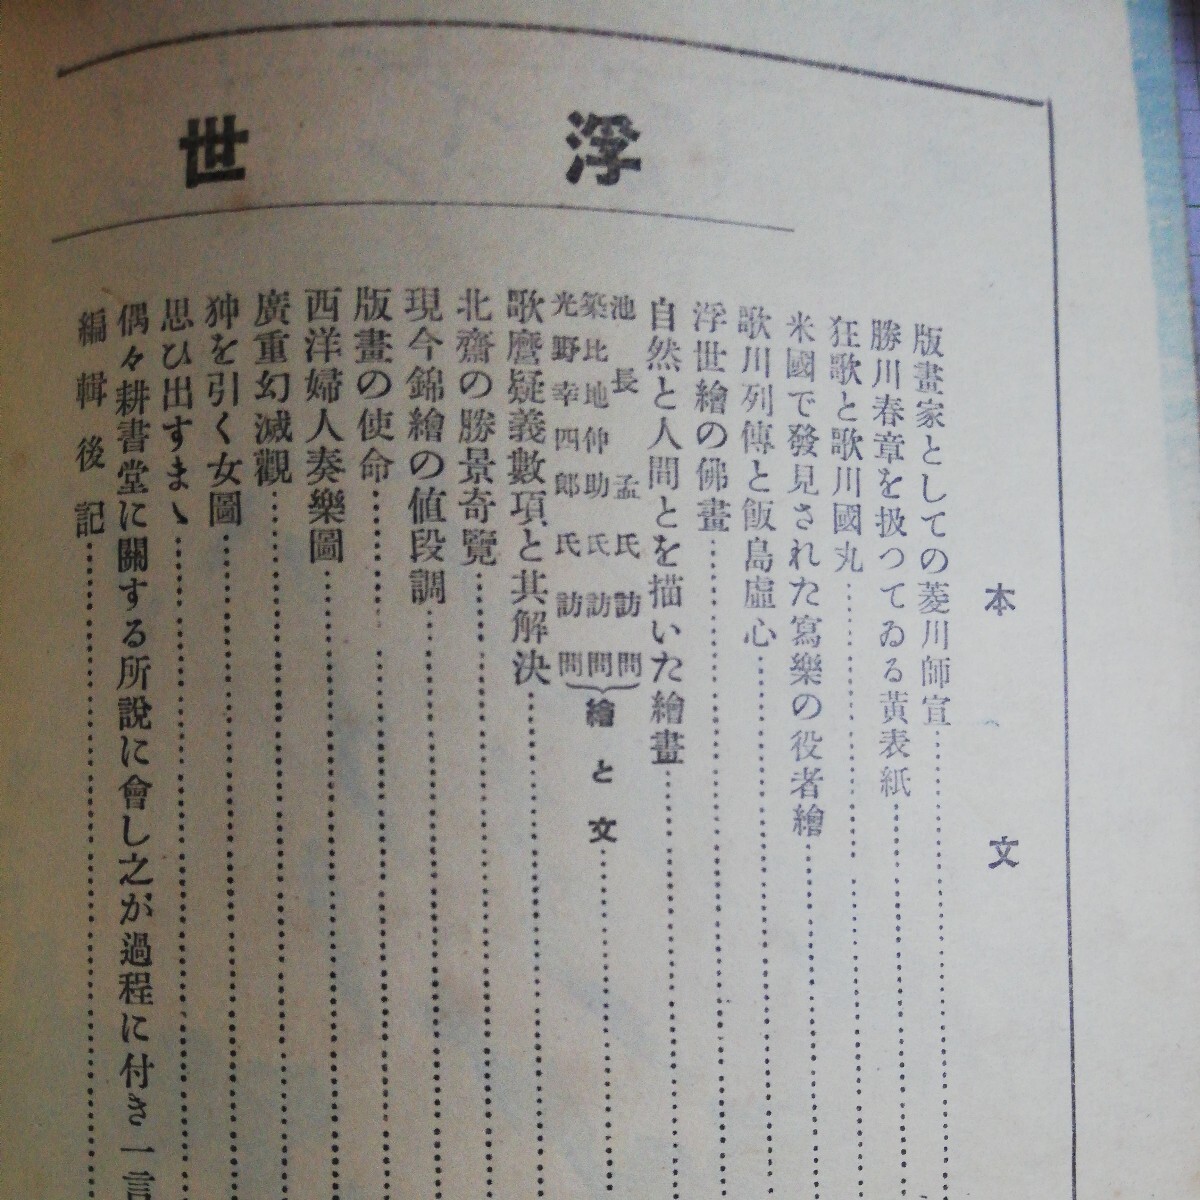 浮世
本文
版畫家としての菱川師宣
勝川春章を扱つてゐる黃表紙
狂歌と歌川國丸
米國で發見された寫樂の役者繪
歌川列傳と飯島虛心
浮世繪の佛畫
自然と人間とを描いた繪畫
池長孟氏訪問
築比地仲助氏訪問
光野幸四郎氏訪問
繪と文
歌麿疑義數項と其解決
北齋の勝景奇覽
現今錦繪の値段調
版畫の使命
西洋婦人奏樂圖
廣重幻滅觀
狆を引く女圖
思ひ出すまゝ
偶々耕書堂に關する所說に會し之が過程に付き一言
編輯後記